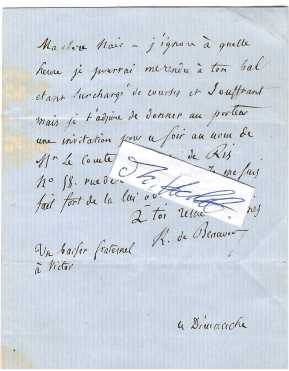 Ma chère Naïs — j'ignore à quelle
heure je pourrai me rendre à ton bal
étant surchargé de courses et souffrant
mais je t'adjure de donner au porteur
une invitation pour ce soir au nom de
Mr Le Comte de Ris
No 58. rue de Je me suis
fait fort de la lui
à toi
R. de Beauvoir
Un baiser fraternel
à Victor
ce Dimanche